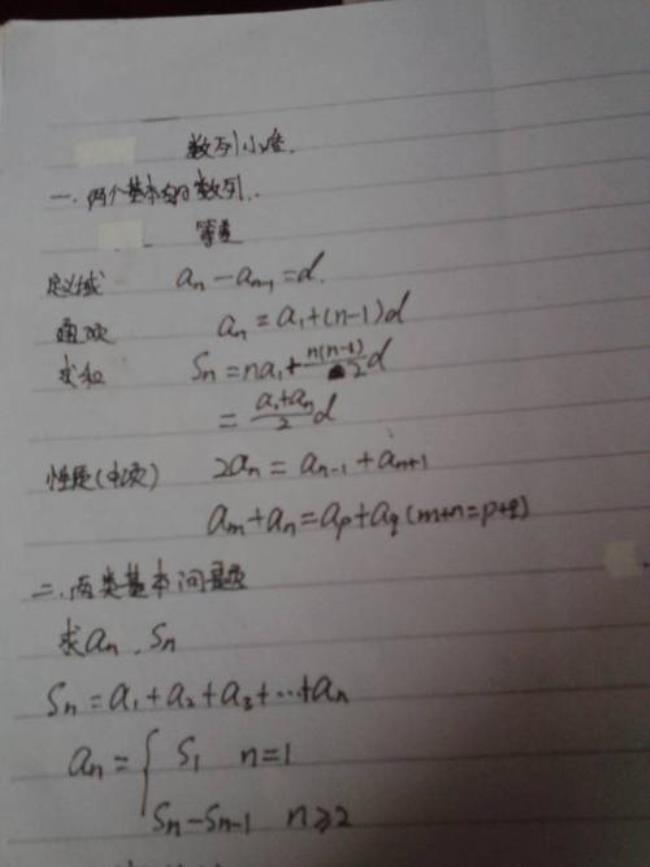 数列小卷.
一.两个基本的数列..
等差
定义域 aₙ-aₙ₋₁=d.
通项 aₙ=a₁+(n-1)d
求和 Sₙ=na₁+n(n-1)/2 d
=(a₁+aₙ)/2 d
性质(中项) 2aₙ=aₙ₋₁+aₙ₊₁
aₘ+aₙ=aₚ+a_q(m+n=p+q)
二.两类基本问题
求aₙ.Sₙ
Sₙ=a₁+a₂+a₃+…+aₙ
aₙ={ S₁ n=1
Sₙ-Sₙ₋₁ n≥2